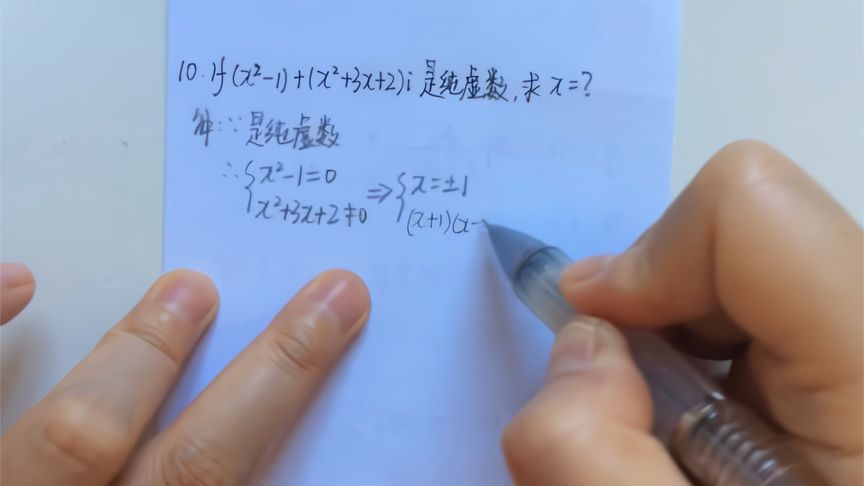 10. If (x²-1)+(x²+3x+2)i 是纯虚数,求x=?
解:∵是纯虚数
∴{x²-1=0 ⇒ {x=±1
x²+3x+2≠0 (x+1)(x-